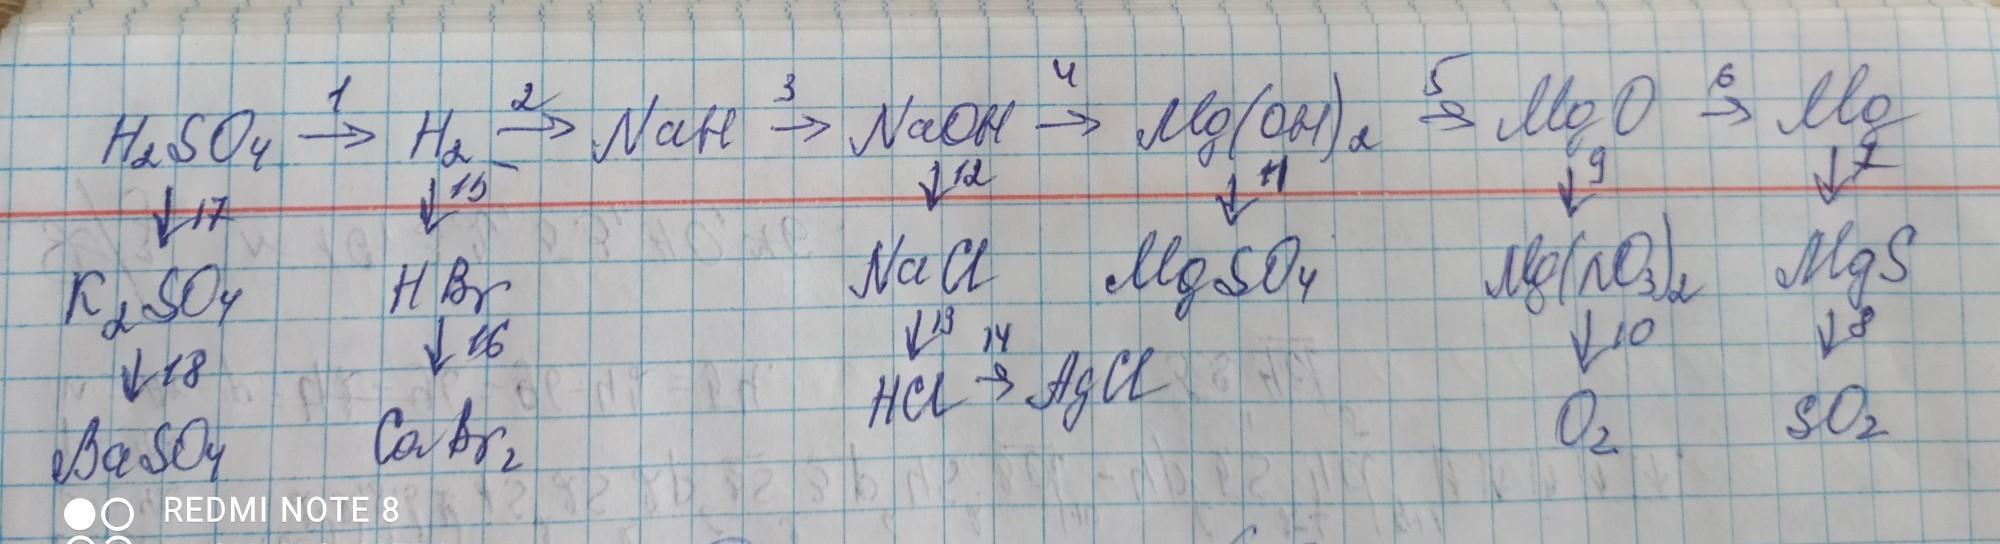 H₂SO₄ →1 H₂ →2 NaH →3 NaOH →4 Mg(OH)₂ →5 MgO →6 Mg
↓17 ↓15 ↓12 ↓11 ↓9 ↓7
K₂SO₄ HBr NaCl MgSO₄ Mg(NO₃)₂ MgS
↓18 ↓16 ↓13 ↓10 ↓8
BaSO₄ CaBr₂ HCl →14 AgCl O₂ SO₂
REDMI NOTE 8